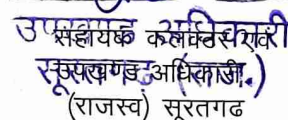 उपखण्ड अधिकारी
सहायक कलक्टर एवं
सूरतगढ़ (राज.)
उपखण्ड अधिकारी
(राजस्व) सूरतगढ